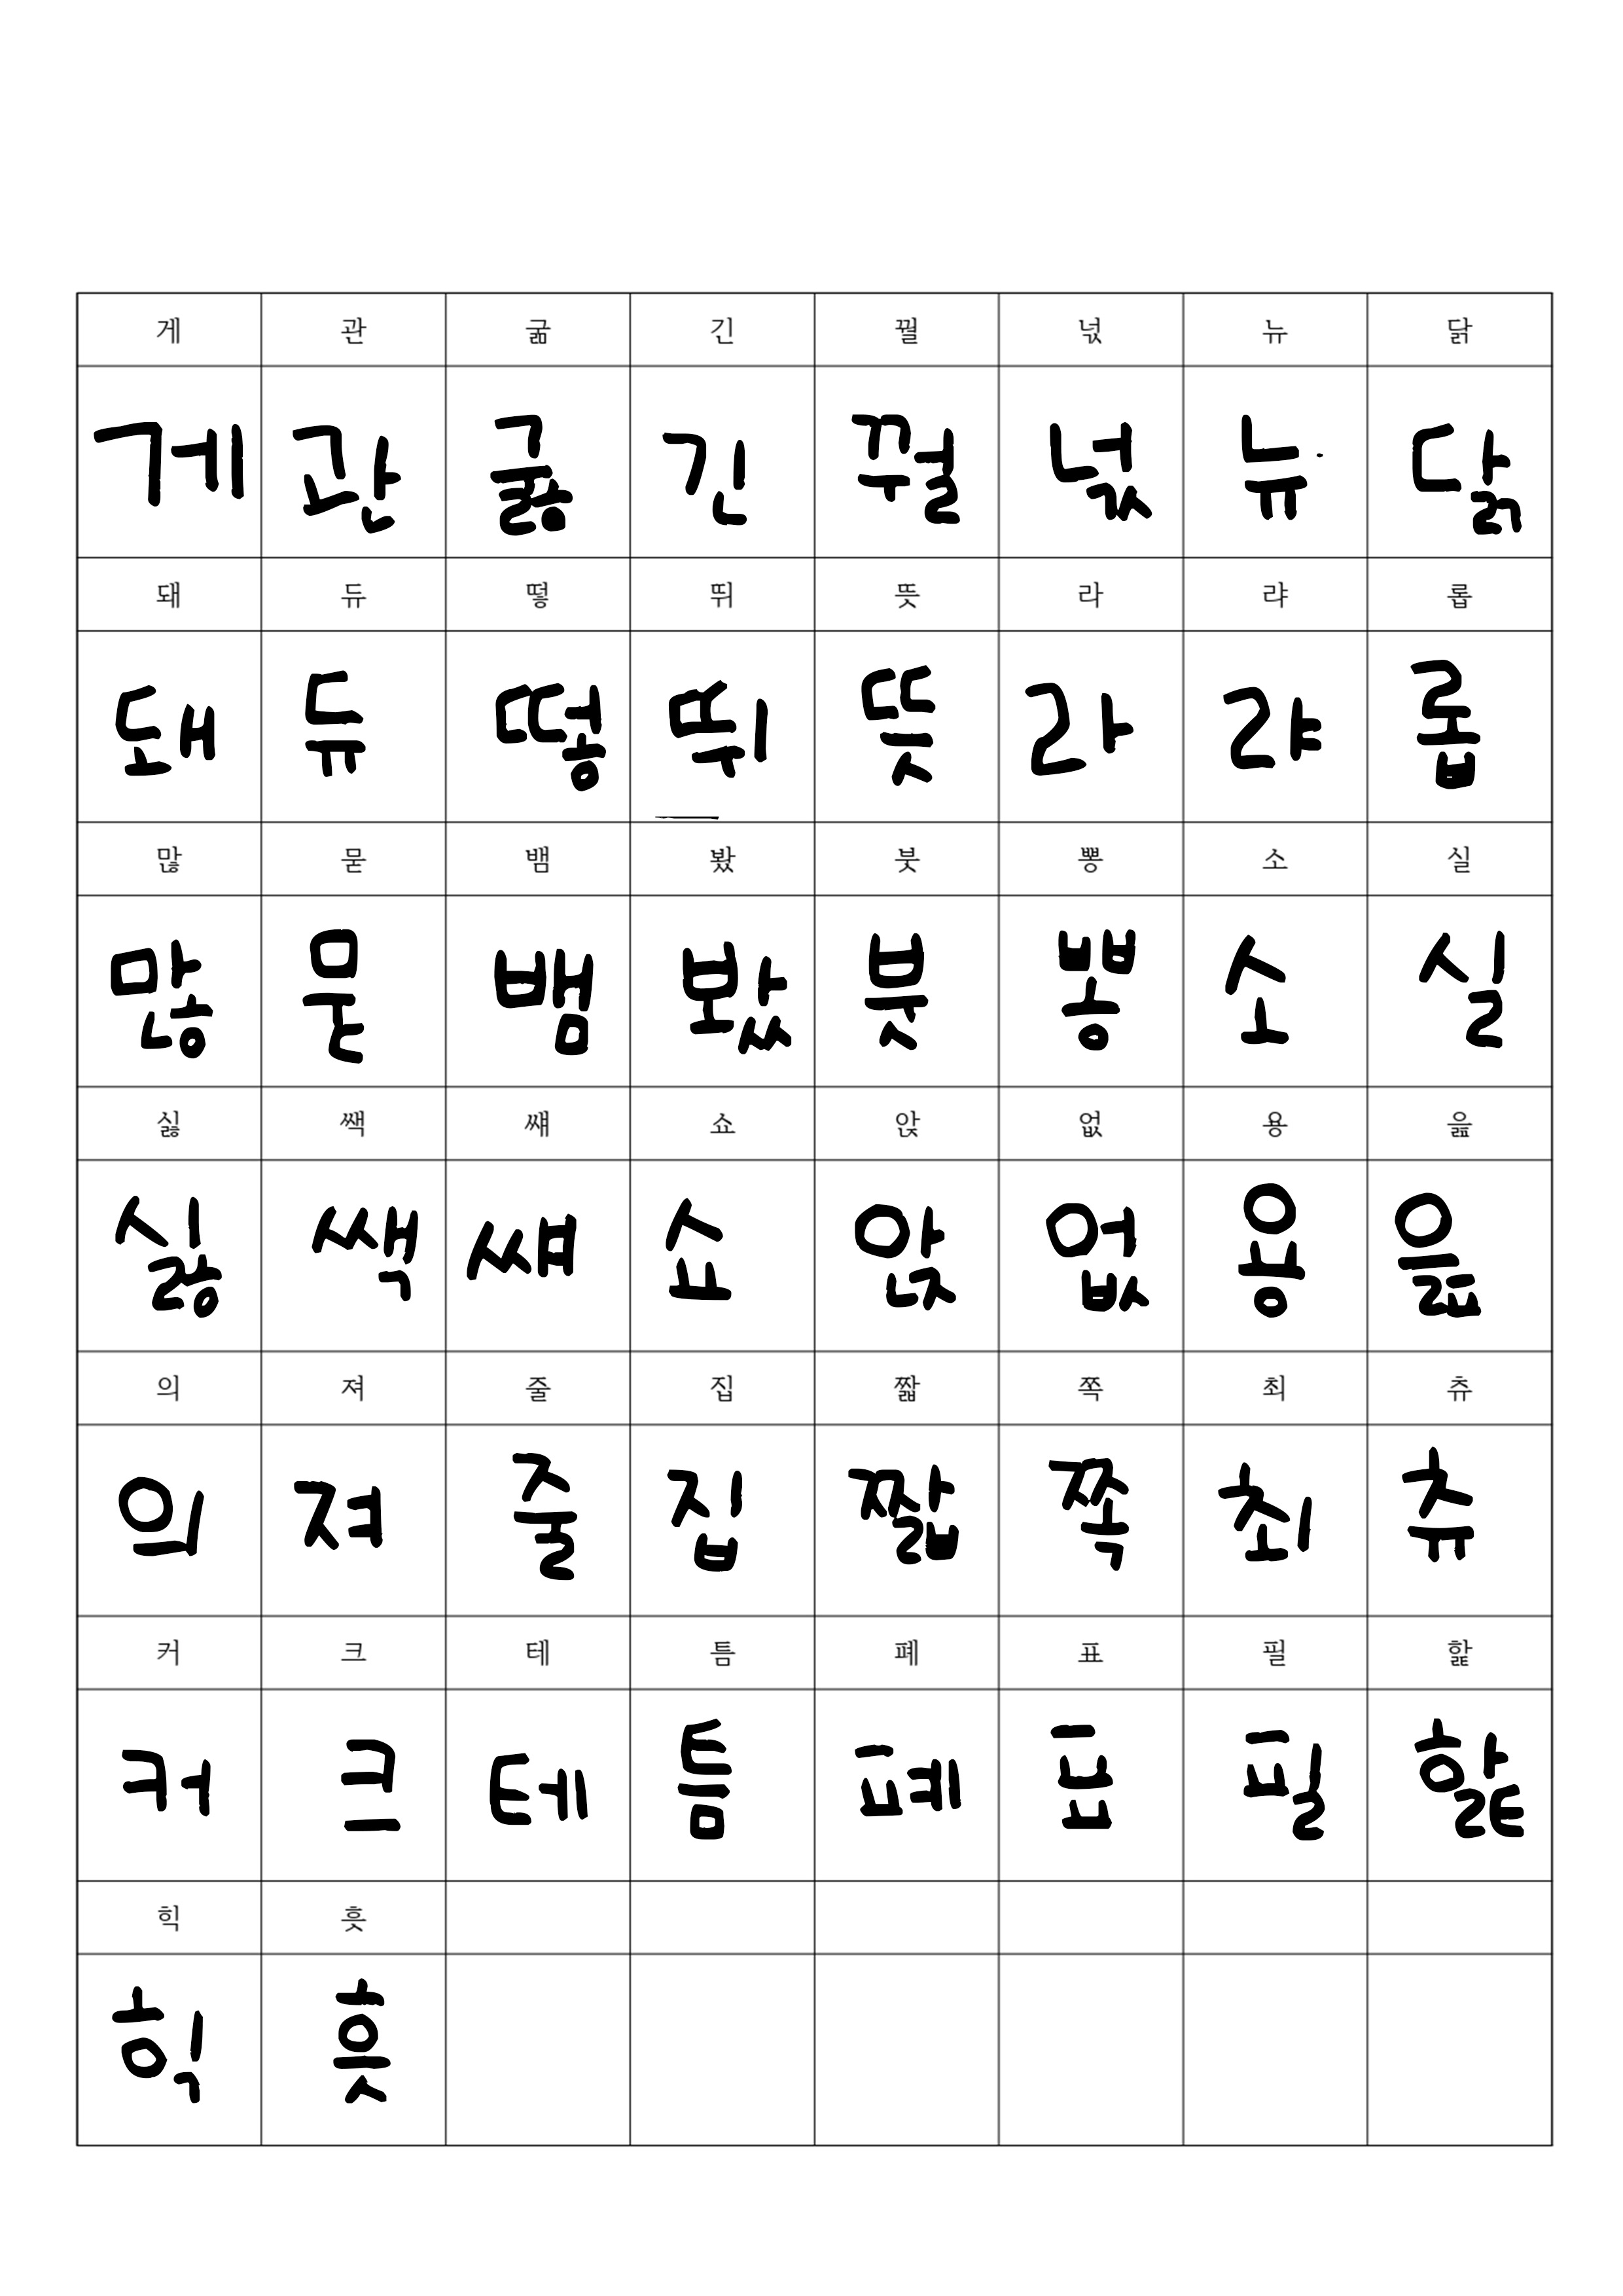 게 관 굶 긴 꿜 넋 뉴 닭
게 관 굶 긴 꿜 넋 뉴 닭
돼 듀 떻 뛰 뜻 라 랴 롭
돼 듀 떻 뛰 뜻 라 랴 롭
많 묻 뱀 봤 붓 뽕 소 실
많 묻 뱀 봤 붓 뽕 소 실
싫 쌕 썌 쇼 앉 없 용 읊
싫 쌕 썌 쇼 앉 없 용 읊
의 져 줄 집 짧 쪽 최 츄
의 져 줄 집 짧 쪽 최 츄
커 크 테 틈 폐 표 필 핥
커 크 테 틈 폐 표 필 핥
힉 흣
힉 흣